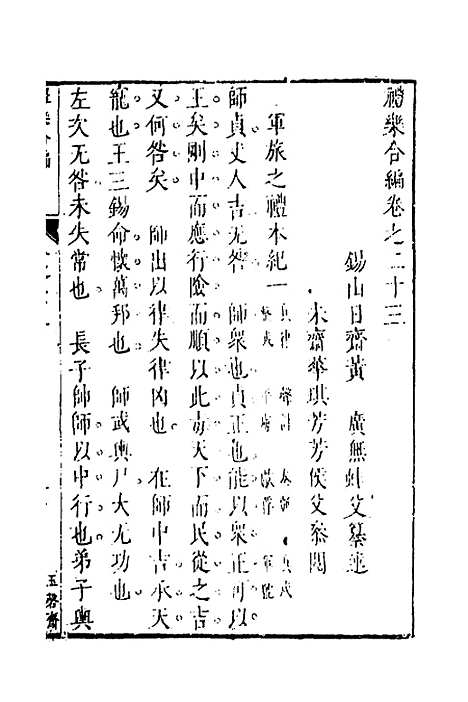 禮樂合編卷之二十三
錫山日齋黃　廣無斁父纂述
未齋華琪芳芳侯父叅閱
軍旅之禮本紀一
師貞丈人吉无咎　師衆也貞正也能以衆正可以
王矣剛中而應行險而順以此毒天下而民從之吉
又何咎矣　師出以律失律凶也　在師中吉承天
寵也王三錫命懷萬邦也　師或輿尸大无功也
左次无咎未失常也　長子帥師以中行也弟子輿
禮樂合編
玉磬齋